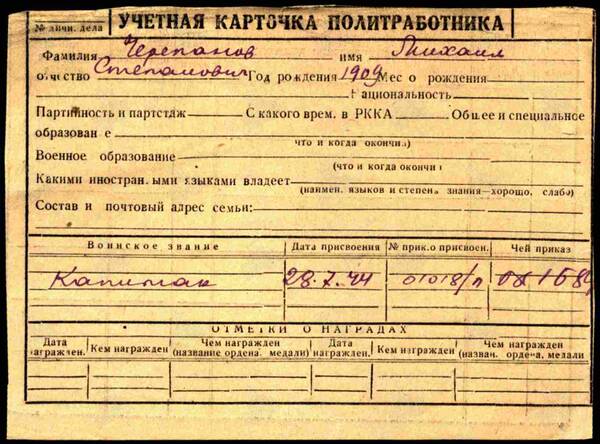 № личн. дела УЧЕТНАЯ КАРТОЧКА ПОЛИТРАБОТНИКА
Фамилия Черепанов имя Михаил
отчество Степанович Год рождения 1909 Место рождения
Национальность
Партийность и партстаж С какого врем. в РККА Общее и специальное
образование
что и когда окончил
Военное образование
(что и когда окончил)
Какими иностранными языками владеет
(наимен. языков и степень знания—хорошо, слабо)
Состав и почтовый адрес семьи:
Воинское звание Дата присвоения № прик.о присвоен. Чей приказ
Капитан 28.7.44 01018/п
ОТМЕТКИ О НАГРАДАХ
Дата награжден. Кем награжден Чем награжден (название ордена, медали) Дата награжден. Кем награжден Чем награжден (назван. ордена, медали